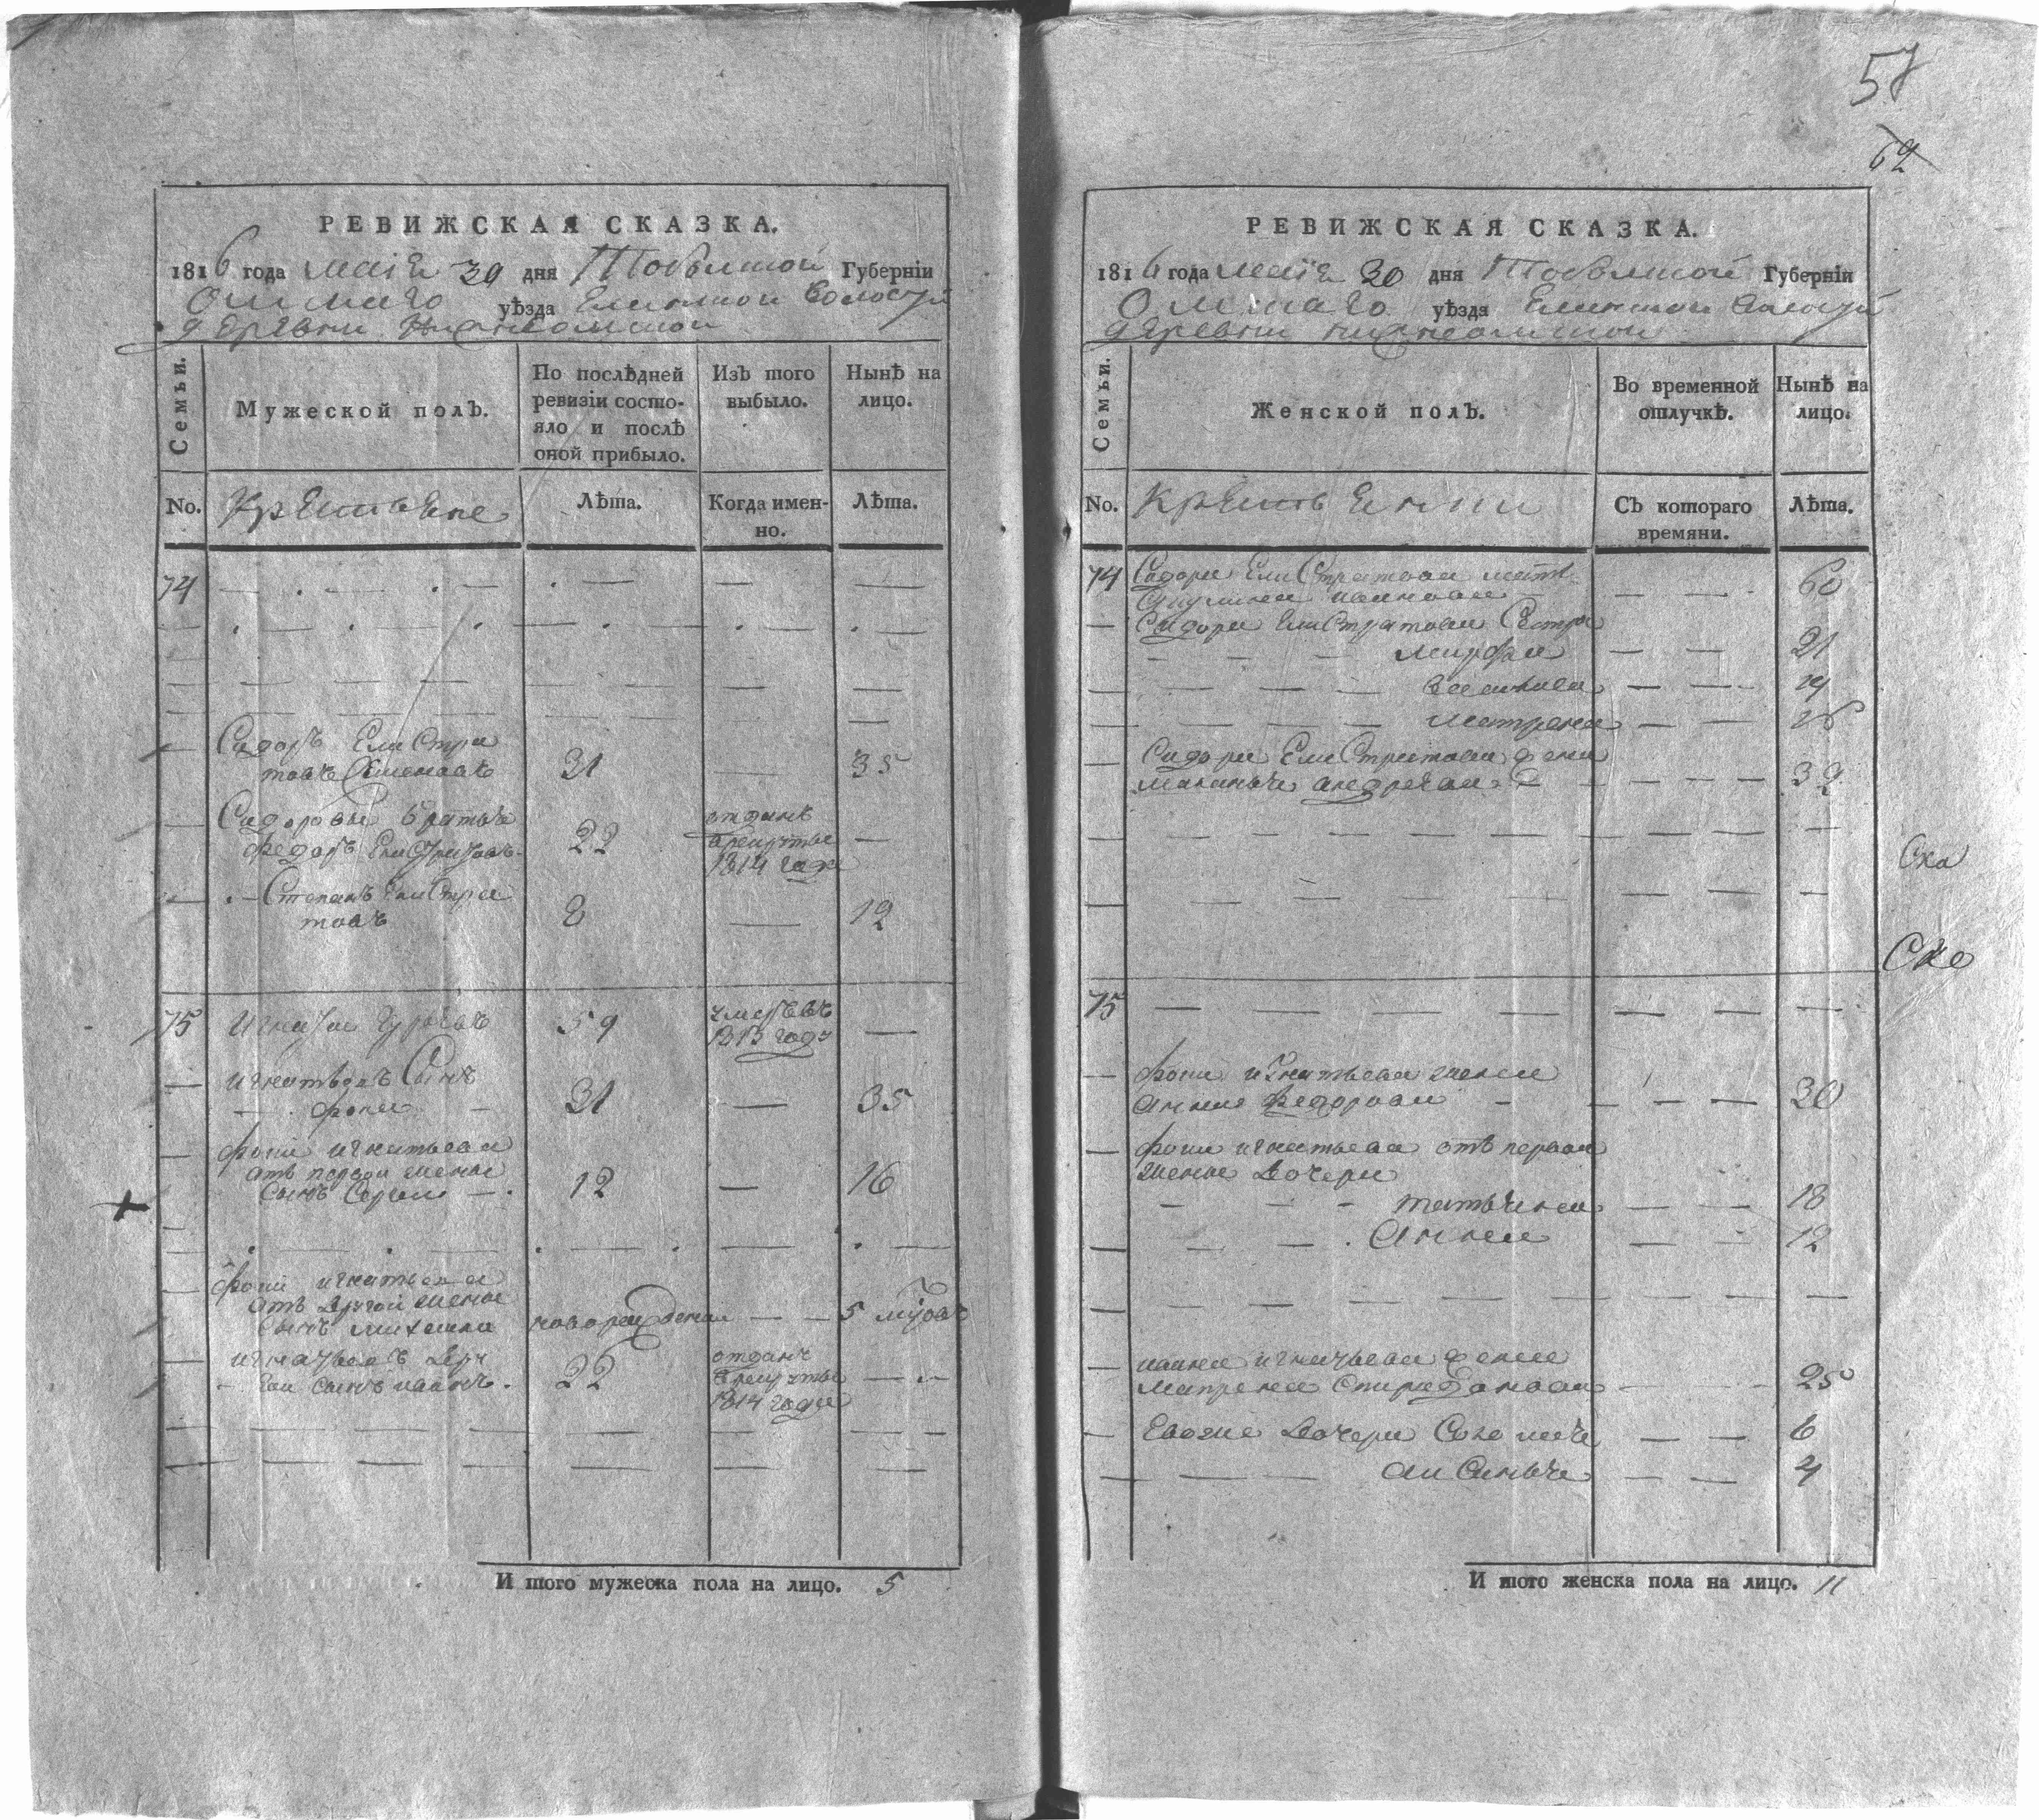 57
62
РЕВИЖСКАЯ СКАЗКА.
1816 года маія 30 дня Тобольской Губерніи
Омскаго уѣзда Еланской волости
деревни Нижнеомской
Семьи.
Мужеской полъ.
По послѣдней ревизіи состо-
яло и послѣ
оной прибыло.
Изъ того
выбыло.
Нынѣ на
лицо.
No.
Крестьяне
Лѣта.
Когда имен-
но.
Лѣта.
74
Сидоръ Елистра
товъ 31 35
Сидоровы братья
Федоръ Елистратовъ 22 отданъ
в рекруты
1814 года
Степанъ Елистра
товъ 8 12
75 Игнатей Гурьевъ 59 умеръ въ
1813 году
Игнатьевъ Сынъ
Фока 31 35
Фоки Игнатьева
отъ первой жены
Сынъ Сергей 12 16
Фоки Игнатьева
отъ другой жены
Сынъ Михаила новорожденной 5 мѣсяцовъ
Игнатьевъ дру
гой Сынъ Иванъ 22 отданъ
в рекруты
1814 года
И того мужеска пола на лицо. 5
РЕВИЖСКАЯ СКАЗКА.
1816 года маія 30 дня Тобольской Губерніи
Омскаго уѣзда Еланской волости
деревни Нижнеомской
Семьи.
Женской полъ.
Во временной
отлучкѣ.
Нынѣ на
лицо.
No.
Съ котораго
времяни.
Лѣта.
74 Сидора Елистратова мать
Акулина Иванова 60
Сидора Елистратова Сестры
Марфа 21
Василиса 19
Матрена
Сидора Елистратова жена
Маланья Андреева 32
Ска
Ске
75
Фоки Игнатьева жена
Анна Федорова 30
Фоки Игнатьева отъ первой
жены Дочери
Татьяна 18
Анна 12
Ивана Игнатьева жена
Матрена Спиридонова 25
Евоже Дочери Соломея 6
Аксинья 4
И того женска пола на лицо. 11